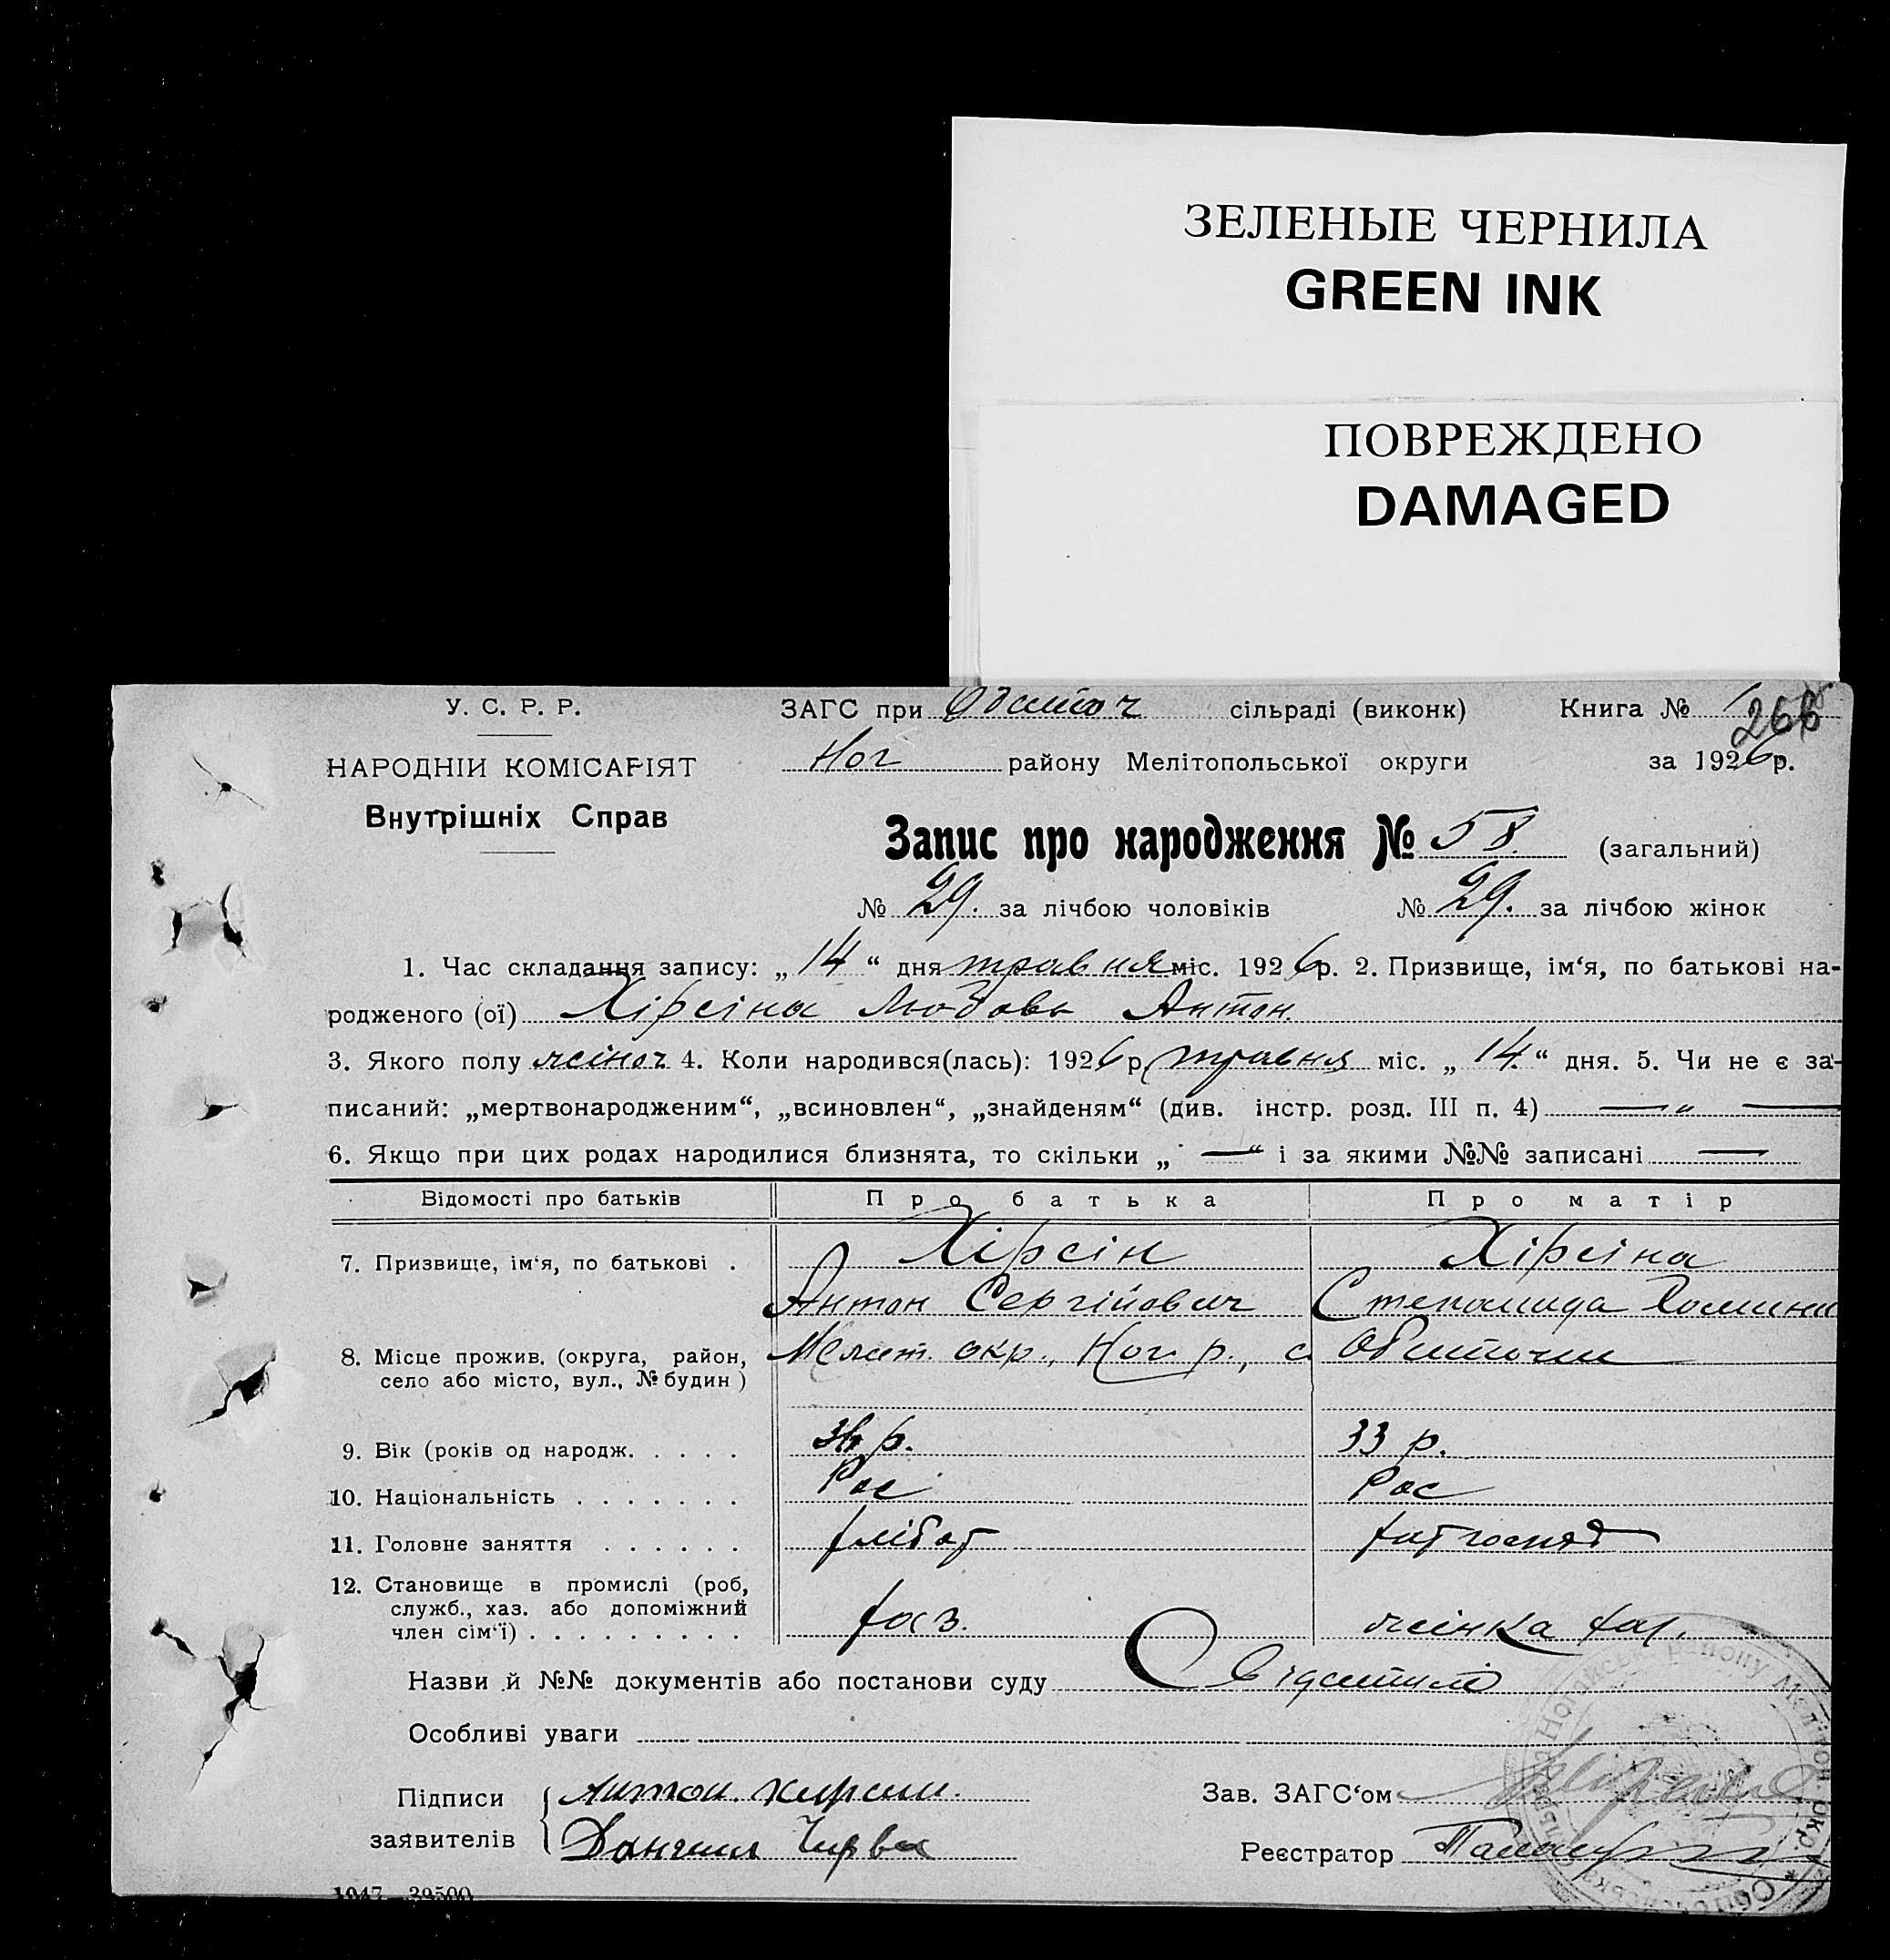 ЗЕЛЕНЫЕ ЧЕРНИЛА
GREEN INK
ПОВРЕЖДЕНО
DAMAGED
У. С. Р. Р. ЗАГС при Обиточ сільраді (виконк) Книга № 266
НАРОДНІЙ КОМІСАРІЯТ Ног району Мелітопольської округи за 1926р.
Внутрішніх Справ
Запис про народження № 58. (загальний)
№ 29. за лічбою чоловіків № 29. за лічбою жінок
1. Час складання запису: „14“ дня травня міс. 1926р. 2. Призвище, ім‘я, по батькові на-
родженого (ої) Хірсіна Любовь Антон.
3. Якого полу жіноч 4. Коли народився(лась): 1926р. травня міс. „14.“ дня. 5. Чи не є за-
писаний: „мертвонародженим“, „всиновлен“, „знайденям“ (див. інстр. розд. III п. 4) — „ —
6. Якщо при цих родах народилися близнята, то скільки „—“ і за якими №№ записані —
Відомості про батьків Про батька Про матір
7. Призвище, ім‘я, по батькові . Хірсін Хірсіна
Антон Сергійович Степанида
8. Місце прожив. (округа, район, Меліт. окр., Ног. р., с. Обиточни
село або місто, вул., № будин)
9. Вік (років од народж. . . . . р. 33 р.
10. Національність . . . . . . . Рос Рос
11. Головне заняття . . . . . . хлібор
12. Становище в промислі (роб,
служб., хаз. або допоміжний
член сім‘ї) . . . . . . . . . хаз. жінка хаз.
Назви й №№ документів або постанови суду
Особливі уваги
Підписи Антон. Хирсин. Зав. ЗАГС‘ом
заявителів Данчил Чирва Реєстратор
1047—39500